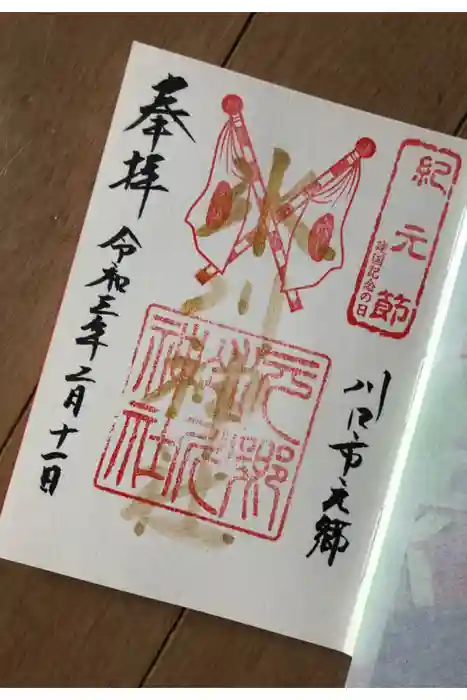 紀元節
建国記念の日
川口市元郷
氷川神社
奉拝
令和三年二月十一日